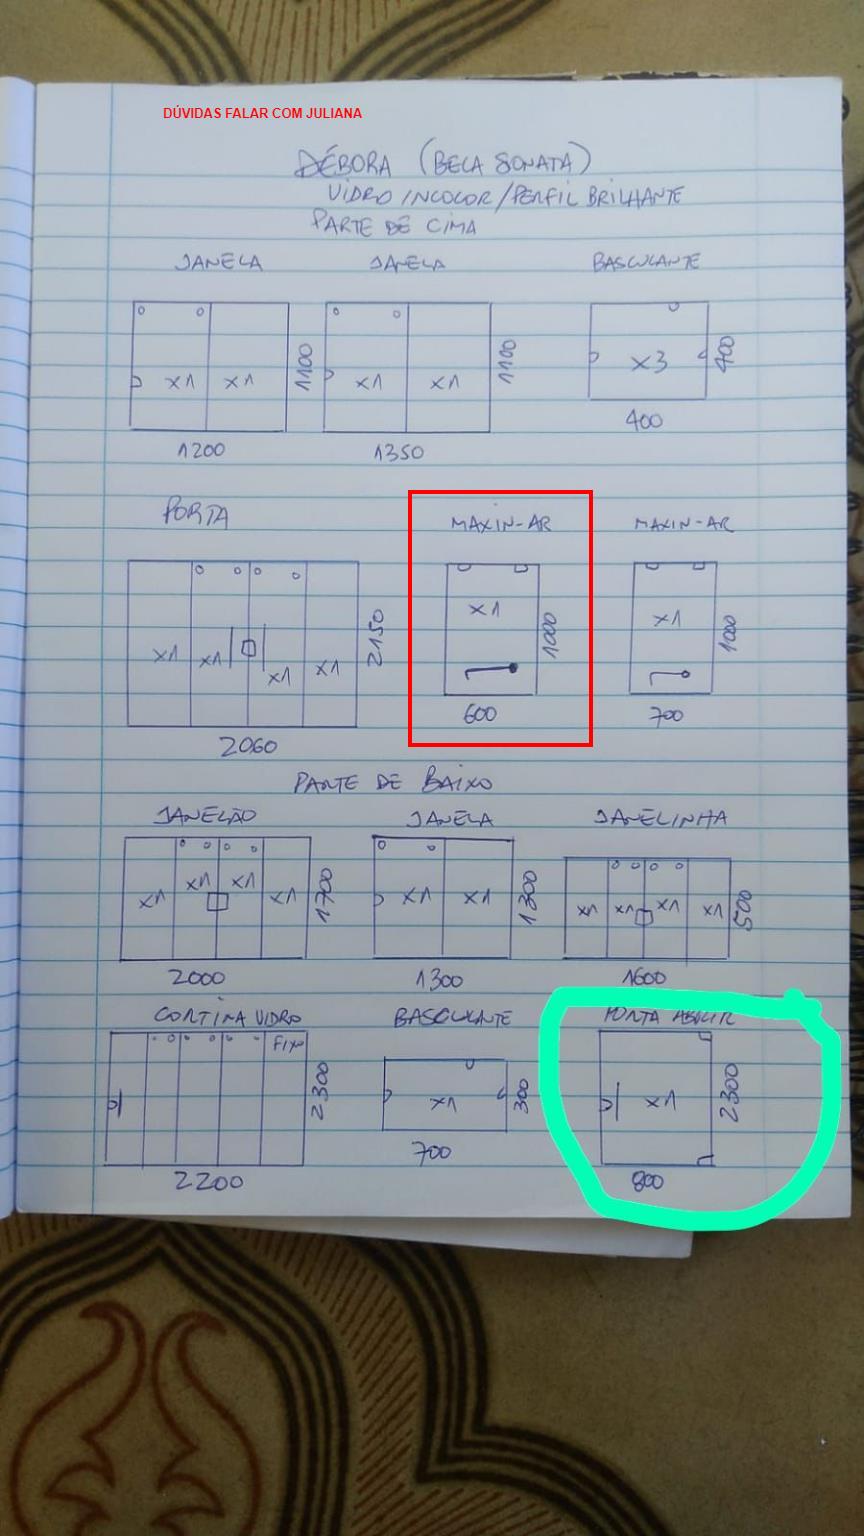 DÚVIDAS FALAR COM JULIANA
DÉBORA (BELA SONATA)
VIDRO INCOLOR/PERFIL BRILHANTE
PARTE DE CIMA
JANELA JANELA BASCULANTE
x1 x1 1100 x1 x1 1100 x3 400
1200 1350 400
PORTA MAXIN-AR MAXIN-AR
x1 x1 x1 x1 2150 x1 1000 x1 1000
2060 600 700
PARTE DE BAIXO
JANELÃO JANELA JANELINHA
x1 x1 x1 x1 1700 x1 x1 1300 x1 x1 x1 x1 500
2000 1300 1600
CORTINA VIDRO BASCULANTE PORTA ABRIR
FIXO 2300 x1 300 x1 2300
2200 700 800